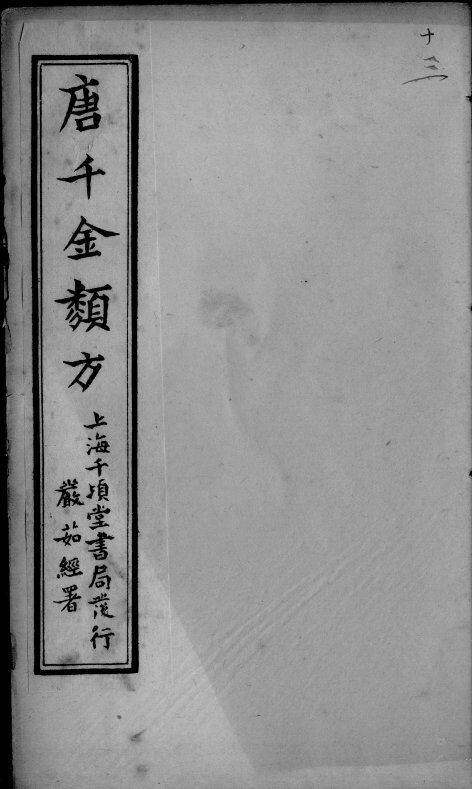 十三
唐千金類方
上海千頃堂書局發行
嚴茹經署